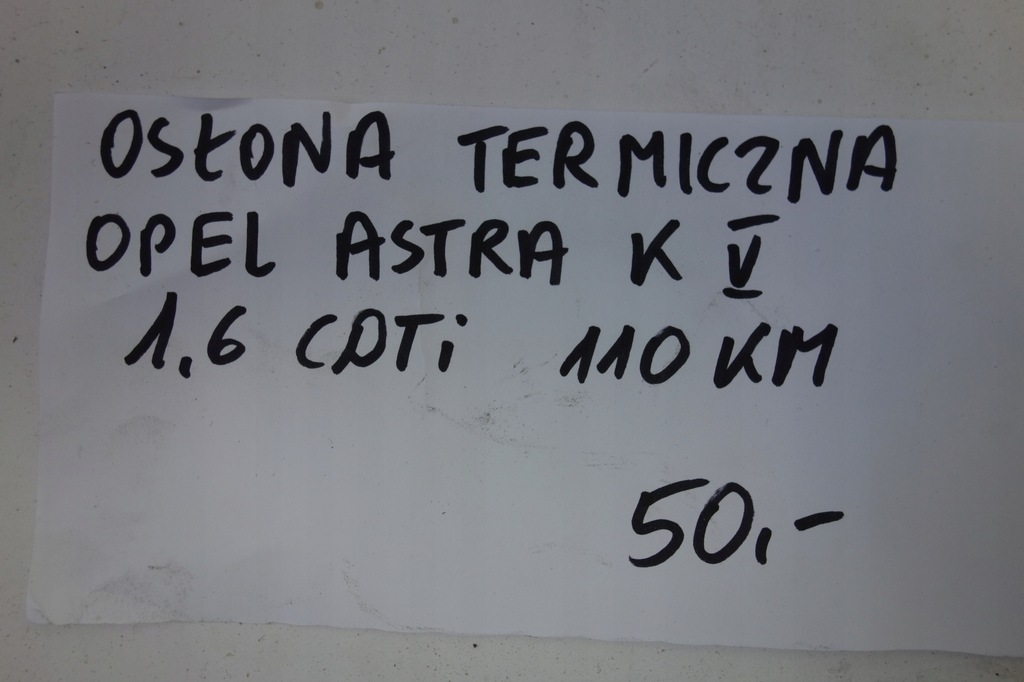 OSŁONA TERMICZNA
OPEL ASTRA K V
1,6 CDTi 110 KM
50,-